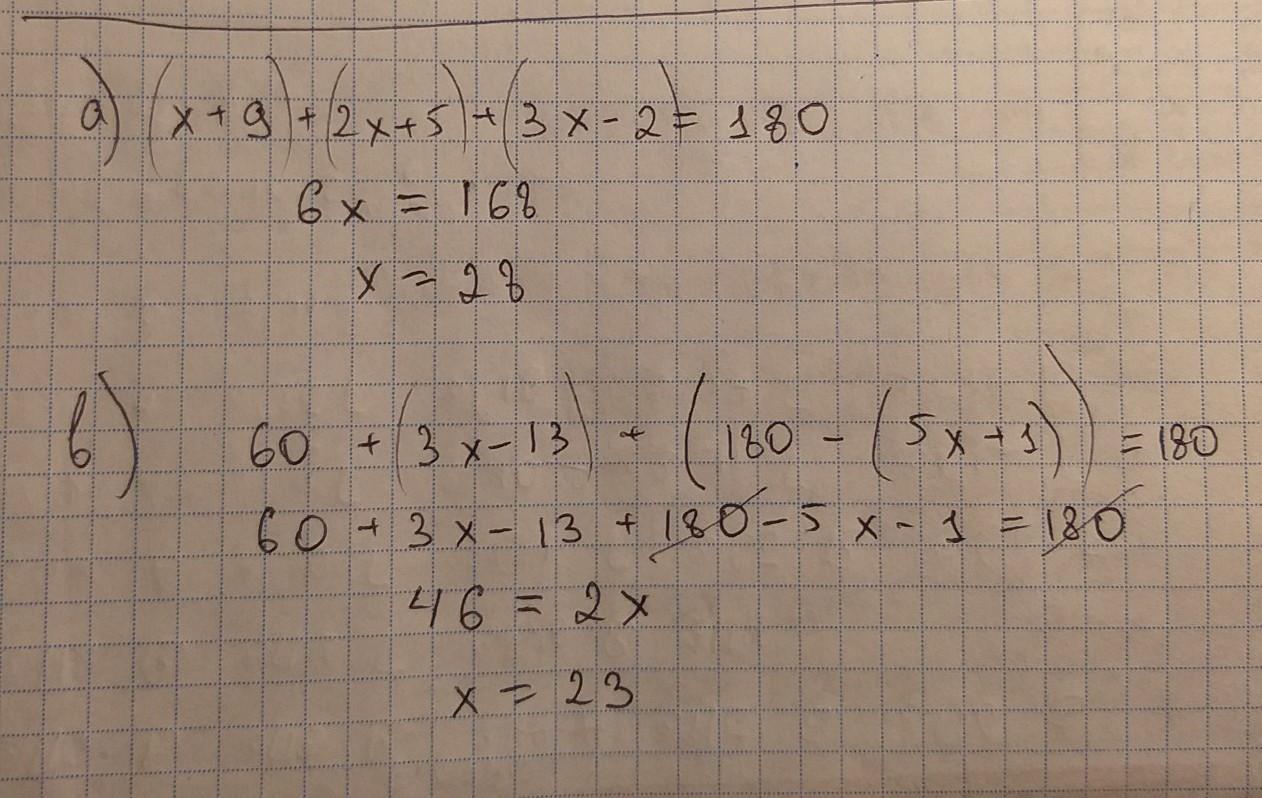 a) (x+9)+(2x+5)+(3x-2)=180
6x=168
x=28
b) 60+(3x-13)+(180-(5x+1))=180
60+3x-13+180-5x-1=180
46=2x
x=23